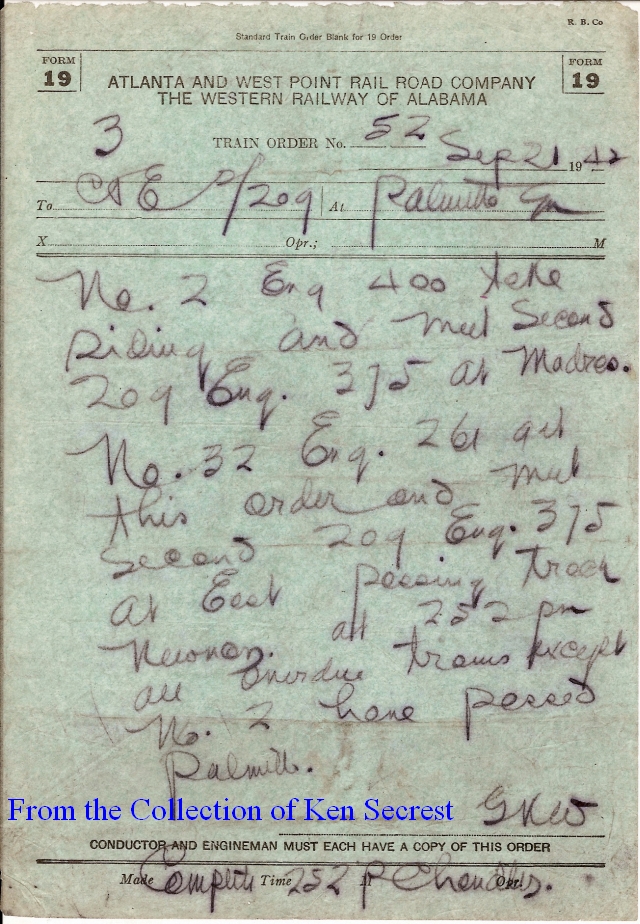 R. B. Co
Standard Train Order Blank for 19 Order
FORM 19 FORM 19
ATLANTA AND WEST POINT RAIL ROAD COMPANY
THE WESTERN RAILWAY OF ALABAMA
3 TRAIN ORDER No. 52
Sep 21 1942
To C&E 2/209 At Palmetto Ga
X Opr.; M
No. 2 Eng 400 take
siding and meet Second
209 Eng. 375 at Madras.
No. 32 Eng. 261 get
this order and meet
second 209 Eng. 375
at East passing track
Newnan. at 252 pm
all overdue trains except
No. 2 have passed
Palmetto.
From the Collection of Ken Secrest
GKW
CONDUCTOR AND ENGINEMAN MUST EACH HAVE A COPY OF THIS ORDER
Made Complete Time 252 P M Chandler. Opr.